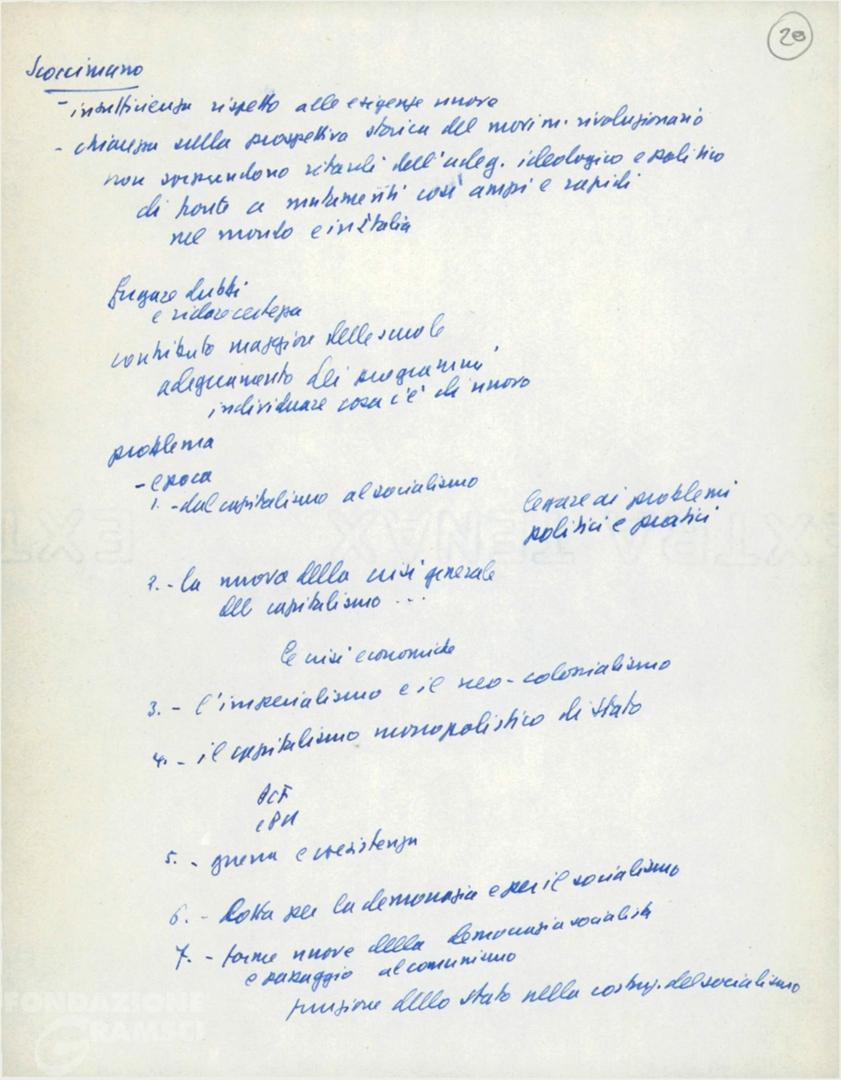 20
Scoccimarro
- insufficienza rispetto alle esigenze nuove
- chiarezza sulla prospettiva storica del movim. rivoluzionario
non sorprendono ritardi dell'adeg. ideologico e politico
di fronte a mutamenti così ampi e rapidi
nel mondo e in Italia
fugare dubbi
e ridare certezza
contributo maggiore delle scuole
adeguamento dei programmi
individuare cosa c'è di nuovo
problema
- epoca
1. - dal capitalismo al socialismo
legare ai problemi
politici e pratici
2. - la nuova della crisi generale
del capitalismo ...
le crisi economiche
3. - l'imperialismo e il neo-colonialismo
4. - il capitalismo monopolistico di Stato
PCF
5. - guerra e coesistenza
6. - lotta per la democrazia e per il socialismo
7. - forme nuove della democrazia socialista
e passaggio al comunismo
funzione dello stato nella costruz. del socialismo
EXTRA TENAX
FONDAZIONE
GRAMSCI